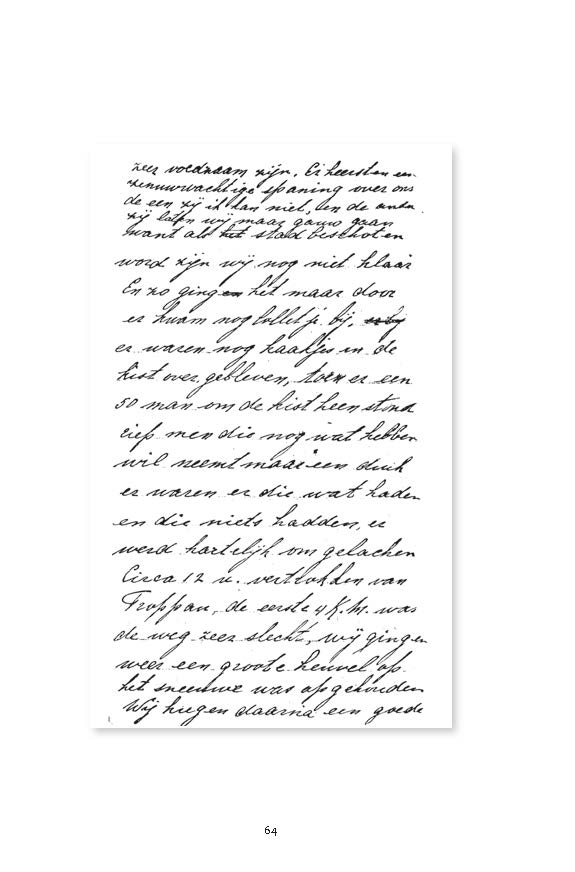 zeer voedzaam zijn. Er heersten een
zenuwachtige spaning over ons
de een zij ik kan niet, en de ander
zij laten wij maar gauw gaan
want als het stad beschoten
word zijn wij nog niet klaar
En zo gingen het maar door
er kwam nog bij,
er waren nog kaatjes in de
kist over gebleven, toen er een
50 man om de kist heen stond
rief men die nog wat hebben
wil neemt maar een duik
er waren er die wat haden
en die niets hadden, er
werd hartelijk om gelachen
Circa 12 u. vertrokken van
Troppau, de eerste 4 K.M. was
de weg zeer slecht, wij gingen
weer een groote heuvel op
het sneeuwe was opgehouden
Wij kregen daarna een goede
64